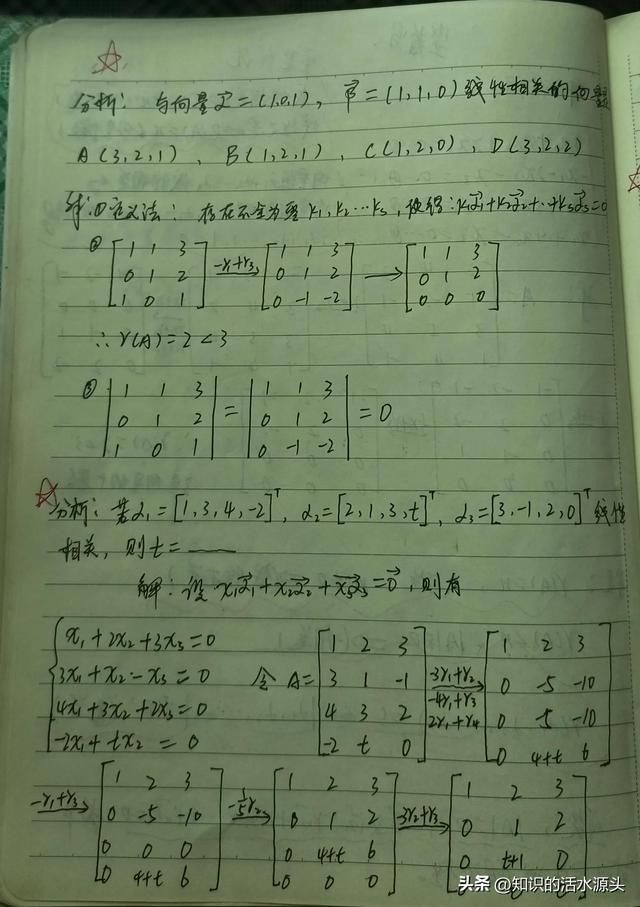 分析：与向量α=(1,0,1)，β=(1,1,0)线性相关的向量
A(3,2,1)、B(1,2,1)、C(1,2,0)、D(3,2,2)
解：①定义法：存在不全为零k₁,k₂…ks，使得：k₁α₁+k₂α₂+…+ksαs=0
② [1 1 3; 0 1 2; 1 0 1] —-r₁+r₃→ [1 1 3; 0 1 2; 0 -1 -2] → [1 1 3; 0 1 2; 0 0 0]
∴ r(A)=2<3
③ |1 1 3; 0 1 2; 1 0 1| = |1 1 3; 0 1 2; 0 -1 -2| = 0
分析：若α₁=[1,3,4,-2]ᵀ，α₂=[2,1,3,t]ᵀ，α₃=[3,-1,2,0]ᵀ线性
相关，则t=____
解：设x₁α₁+x₂α₂+x₃α₃=0，则有
x₁+2x₂+3x₃=0
3x₁+x₂-x₃=0
4x₁+3x₂+2x₃=0
-2x₁+tx₂=0
令A=[1 2 3; 3 1 -1; 4 3 2; -2 t 0] —-3r₁+r₂ -4r₁+r₃ 2r₁+r₄→ [1 2 3; 0 -5 -10; 0 -5 -10; 0 4+t 6]
—-r₂+r₃→ [1 2 3; 0 -5 -10; 0 0 0; 0 4+t 6] —-1/5r₂→ [1 2 3; 0 1 2; 0 4+t 6; 0 0 0] —-3r₂+r₃→ [1 2 3; 0 1 2; 0 t+1 0;
头条 @知识的活水源头